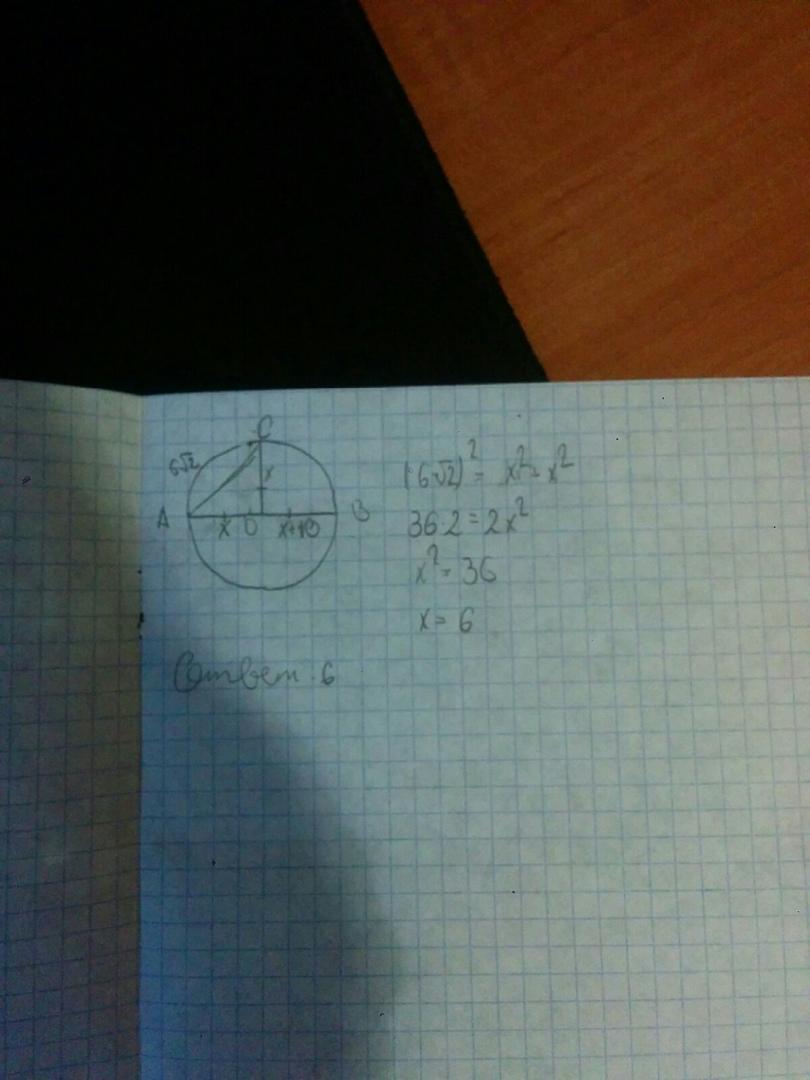 C
6√2
x
A
x O
B
(6√2)² = x² = x²
36·2 = 2x²
x² = 36
x = 6
Ответ: 6